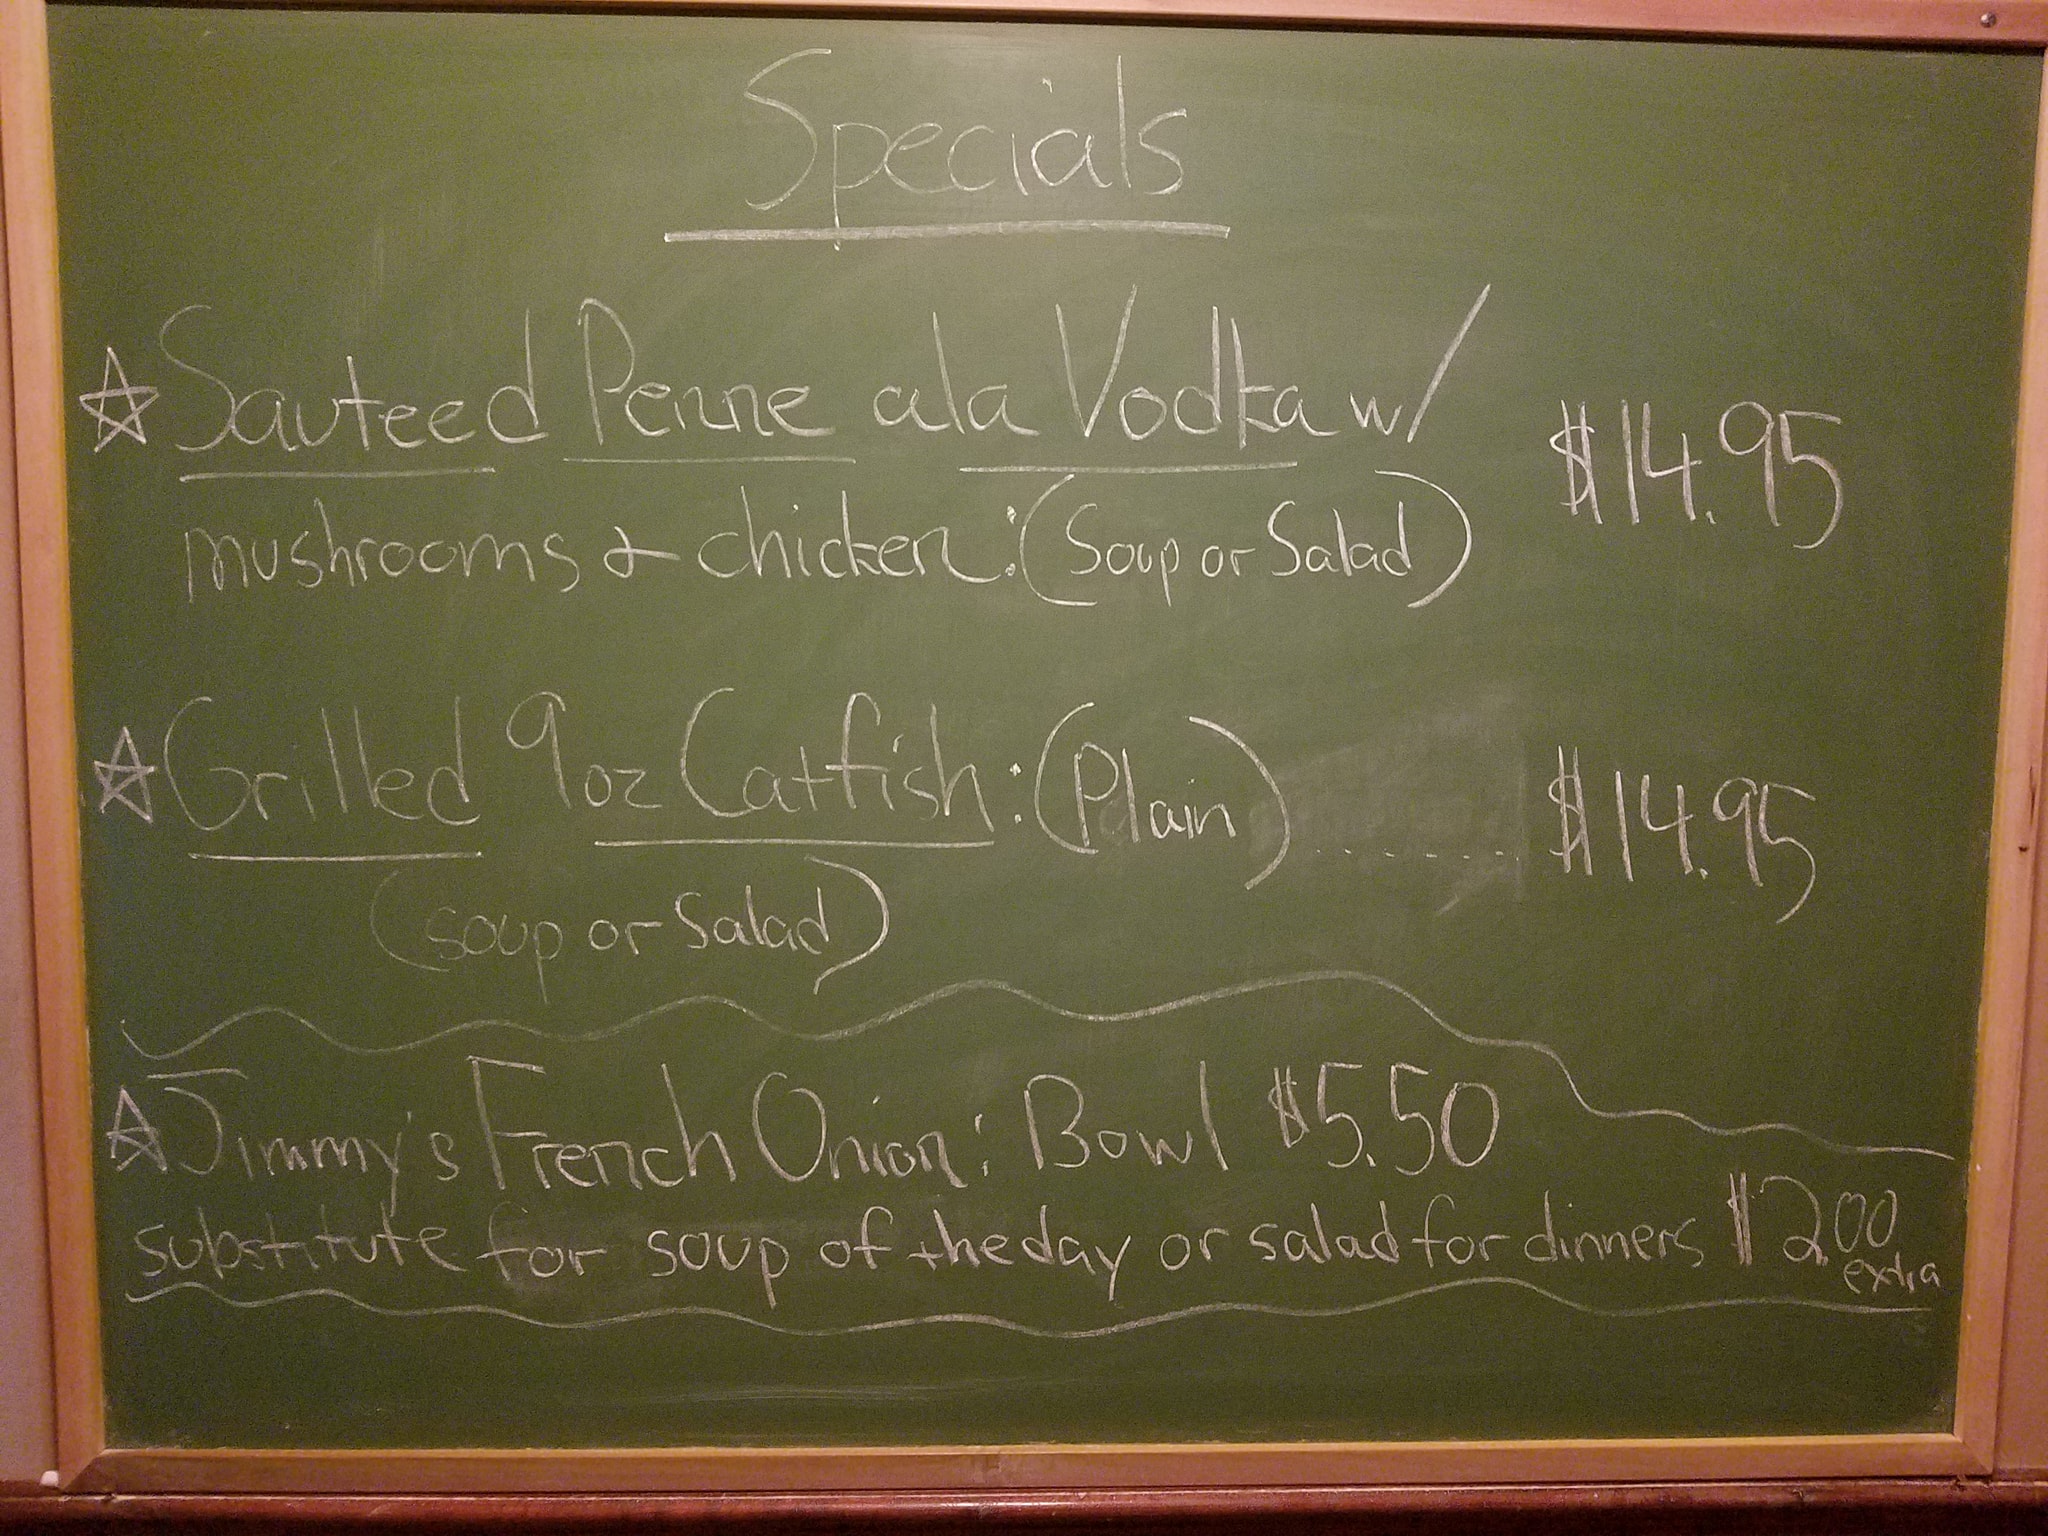 Specials
☆ Sauteed Penne ala Vodka w/
mushrooms & chicken: (Soup or Salad) $14.95
☆ Grilled 9oz Catfish: (Plain) ........ $14.95
(soup or salad)
☆ Jimmy's French Onion: Bowl $5.50
substitute for soup of the day or salad for dinners $2.00
extra